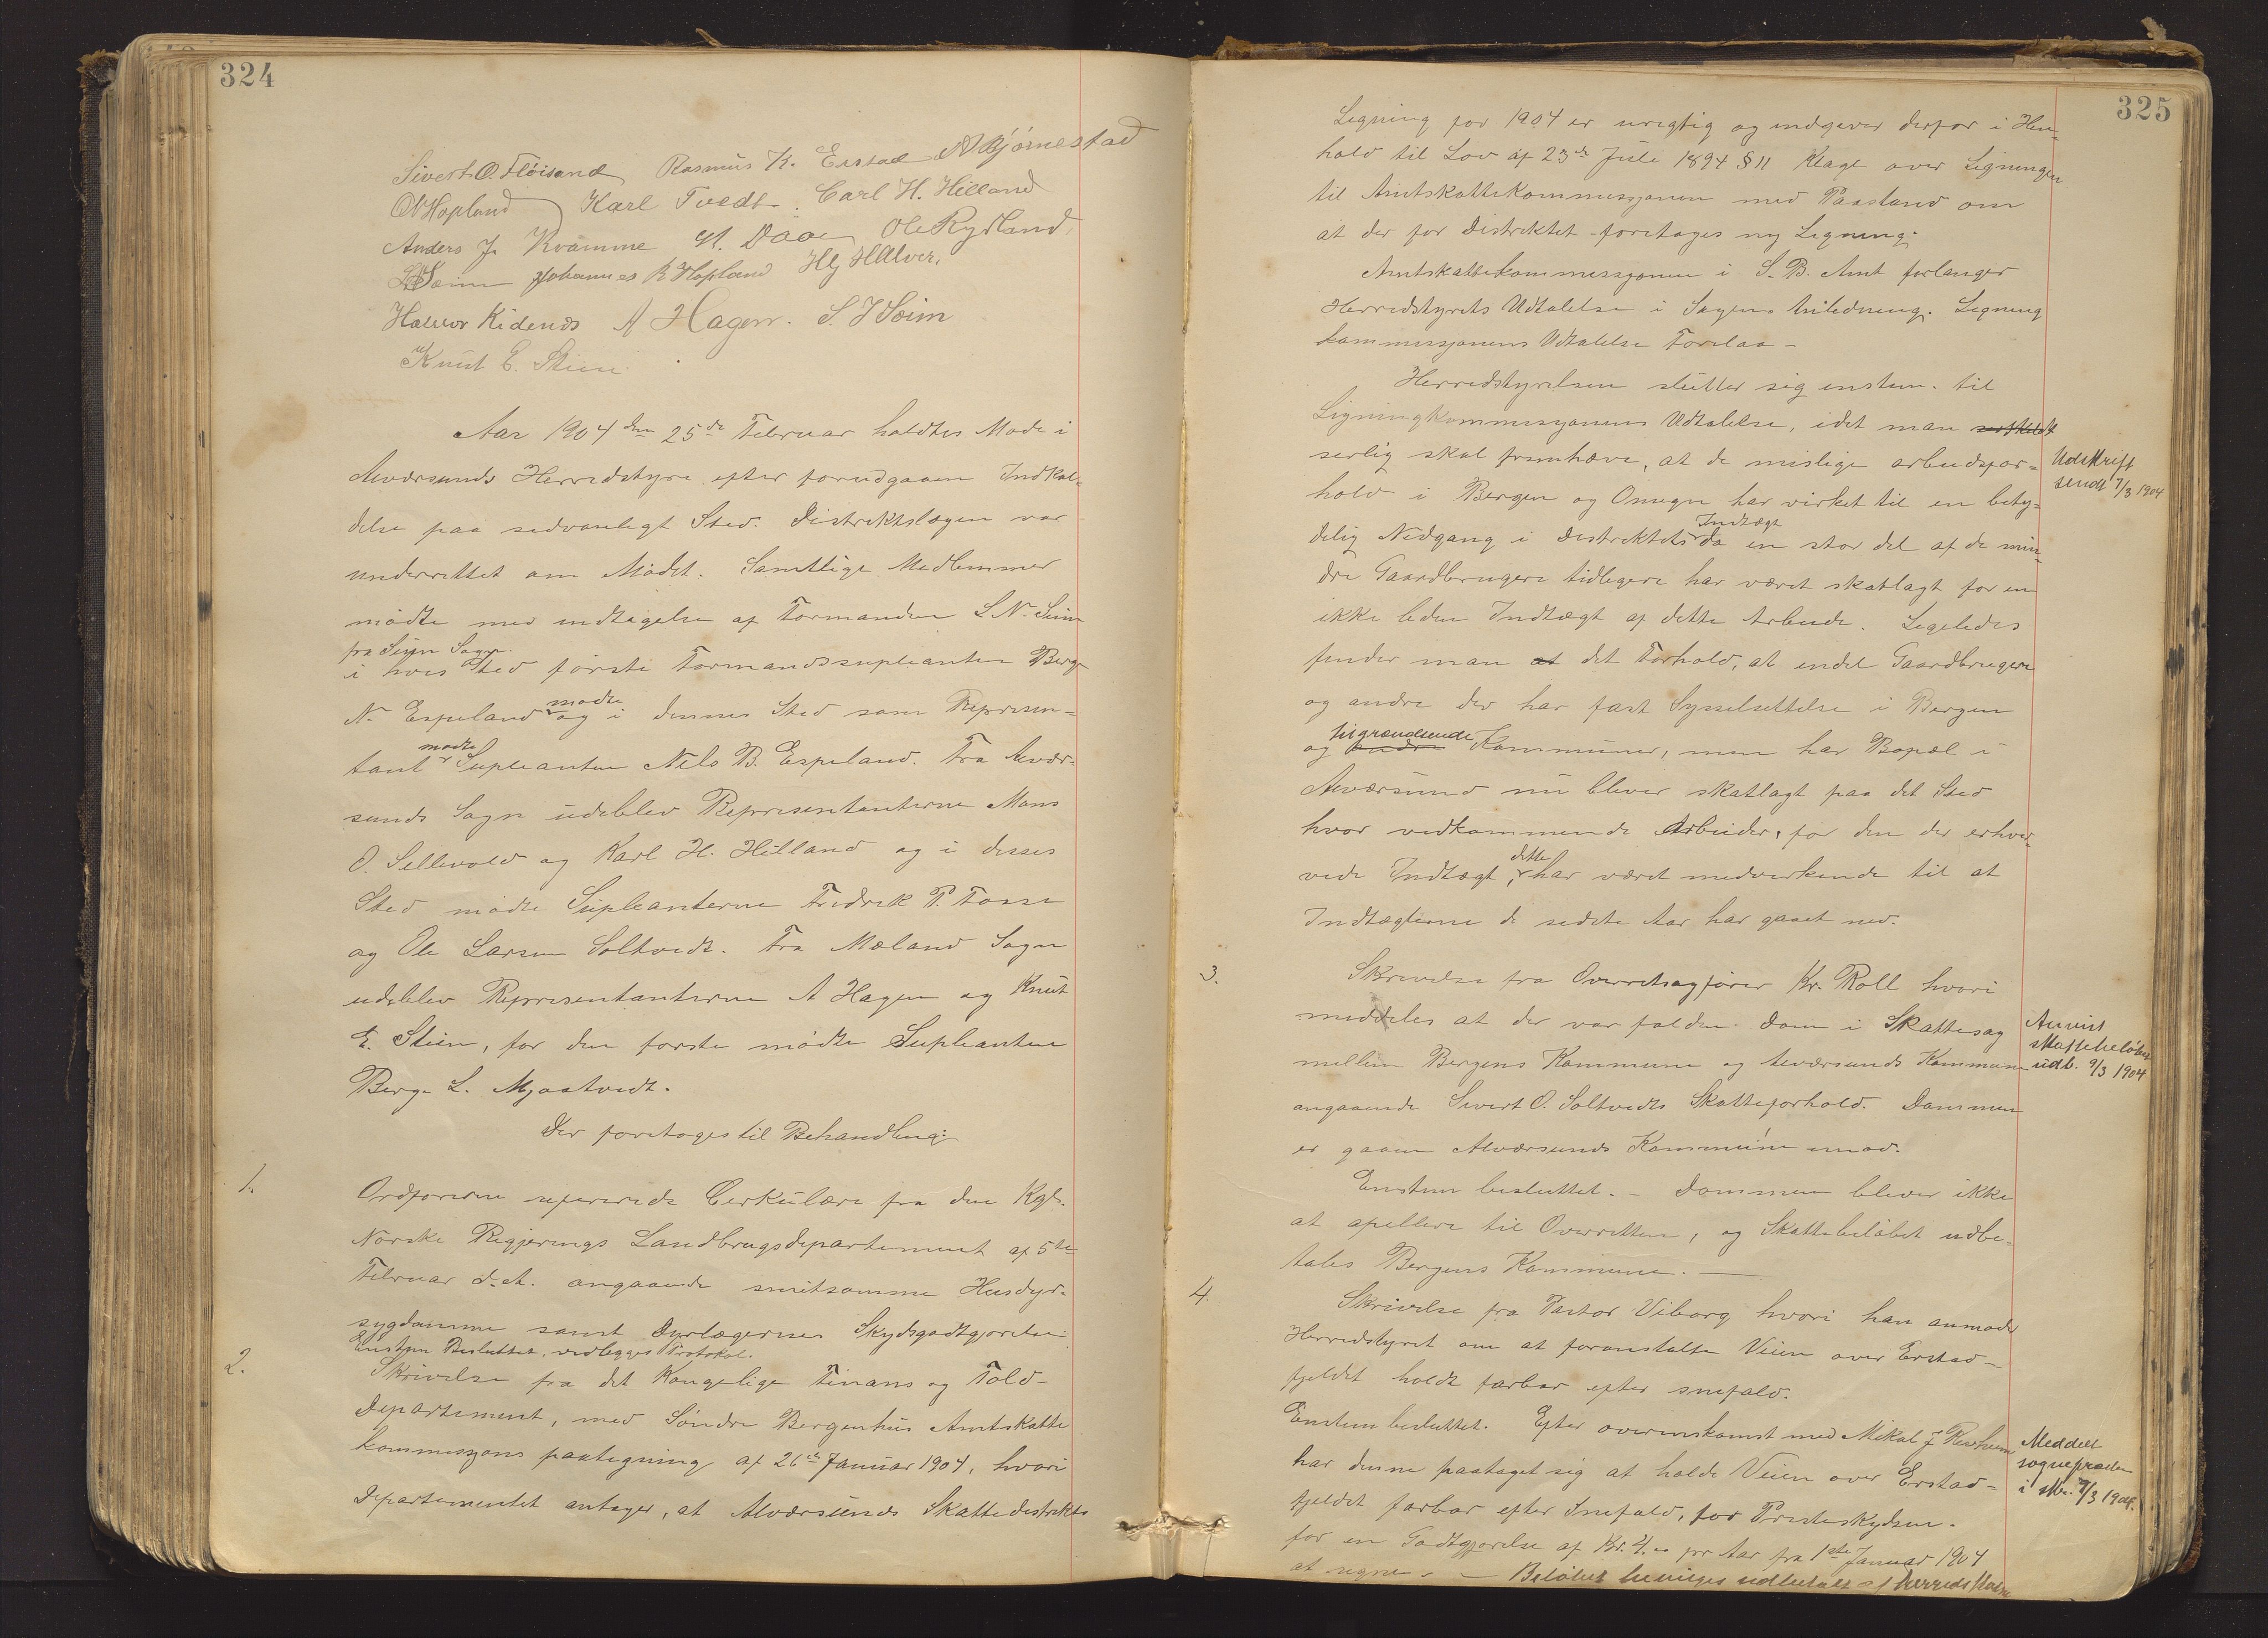 324
Sivert O. Fløisand Rasmus K. Erstad A Bjørnestad
O N Hopland Karl Tvedt. Carl H. Hilland
Anders J. Kvamme M. Daae Ole Rydland
Johannes R Hopland H G H Alver.
Halvor Kidends A Hagen. S. J Seim
Knut E. Stien
Aar 1904 den 25de Februar holdtes Møde i
Alværsunds Herredstyre efter forudgaaen Indkal-
delse paa sedvanligt Sted. Distriktslægen var
underrettet om Mødet. Samtlige Medlemmer
mødte med undtagelse af Formanden L N. Seim
fra Seim Sogn.
i hvis Sted første Formandssupleanten Berge
N. Espeland mødte og i dennes Sted som Represen-
tant mødte Supleanten Nils B. Espeland. Fra Alvær-
sunds Sogn udeblev Representanterne Mons
O. Sellevold og Karl H. Hilland og i disses
Sted mødte Supleanterne Fredrik P. Fosse
og Ole Larsen Soltvedt. Fra Mæland Sogn
udeblev Representanterne A Hagen og Knut
E. Stien, for den første mødte Supleanten
Berge L. Mjaatvedt.
Der foretoges til Behandling:
1. Ordføreren refererede Cerkulære fra den Kgl.
Norske Regjerings Landbrugsdepartement af 5te
Februar d. A. angaaende smitsomme Husdyr-
sygdomme samt Dyrlægernes Skydsgodtgjørelse
Enstem Besluttet. vedlegges Protokol.
2. Skrivelse fra det Kongelige Finans og Told-
Departement, med Søndre Bergenhus Amtskatte
kommissjons paategning af 26de Januar 1904, hvori
Departementet antager, at Alværsunds Skattedistrikts
325
Ligning for 1904 er urigtig og indgiver derfor i Hen-
hold til Lov af 23de Juli 1894 § 11 Klage over Ligningen
til Amtskattekommissjonen med Paastand om
at der for Distriktet foretages ny Ligning.
Amtskattekommissjonen i S. B. Amt forlanger
Herredstyrets Udtalelse i Sagens Anledning. Ligning
kommissjonens Udtalelse Forelaa -
Herredstyrelsen slutter sig enstem. til
Ligningkommissjonens Udtalelse, idet man
serlig skal fremhæve, at de mislige arbeidsfor-
hold i Bergen og Omegn har virket til en bety-
delig Nedgang i Distriktets Indtægt da en stor del af de min-
dre Gaardbrugere tidligere har været skatlagt for en
ikke liden Indtægt af dette Arbeide. Ligeledes
finder man at det Forhold, at endel Gaardbrugere
og andre der har fast Sysselsettelse i Bergen
og andre tilgrændsende Kommuner, men har Bopæl i
Alværsund nu bliver skatlagt paa det Sted
hvor vedkommende Arbeider, for den der erhver-
vede Indtægt, dette har været medvirkende til at
Indtægterne de sidste Aar har gaaet ned.
Udskrift
sendt 7/3 1904
3. Skrivelse fra Overretsagfører Kr. Roll hvori
meddeles at der var falden Dom i Skattesag
mellem Bergens Kommune og Alværsunds Kommune
angaaende Sivert O. Soltvedts Skatteforhold. Dommen
er gaaen Alværsunds Kommune imod.
Enstem besluttet. - Dommen bliver ikke
at apellere til Overretten, og Skattebeløbet udbe-
tales Bergens Kommune. -
Anvist
skattebeløbet
udb. 9/3 1904
4. Skrivelse fra Pastor Viborg hvori han anmoder
Herredstyret om at foranstalte Veien over Erstad-
fjeldet holdt farbar efter snefald.
Enstem besluttet. Efter overenskomst med Mikal J
har denne paataget sig at holde Veien over Erstad-
fjeldet farbar efter Snefald, for Presteskydsen.
for en Godtgjørelse af Kr. 4.00 pr Aar fra 1ste Januar 1904
at regne. - Beløbet bevilges udbetalt af herredskassen
Meddelt
sognepræsten
i skr. 7/3 1904.